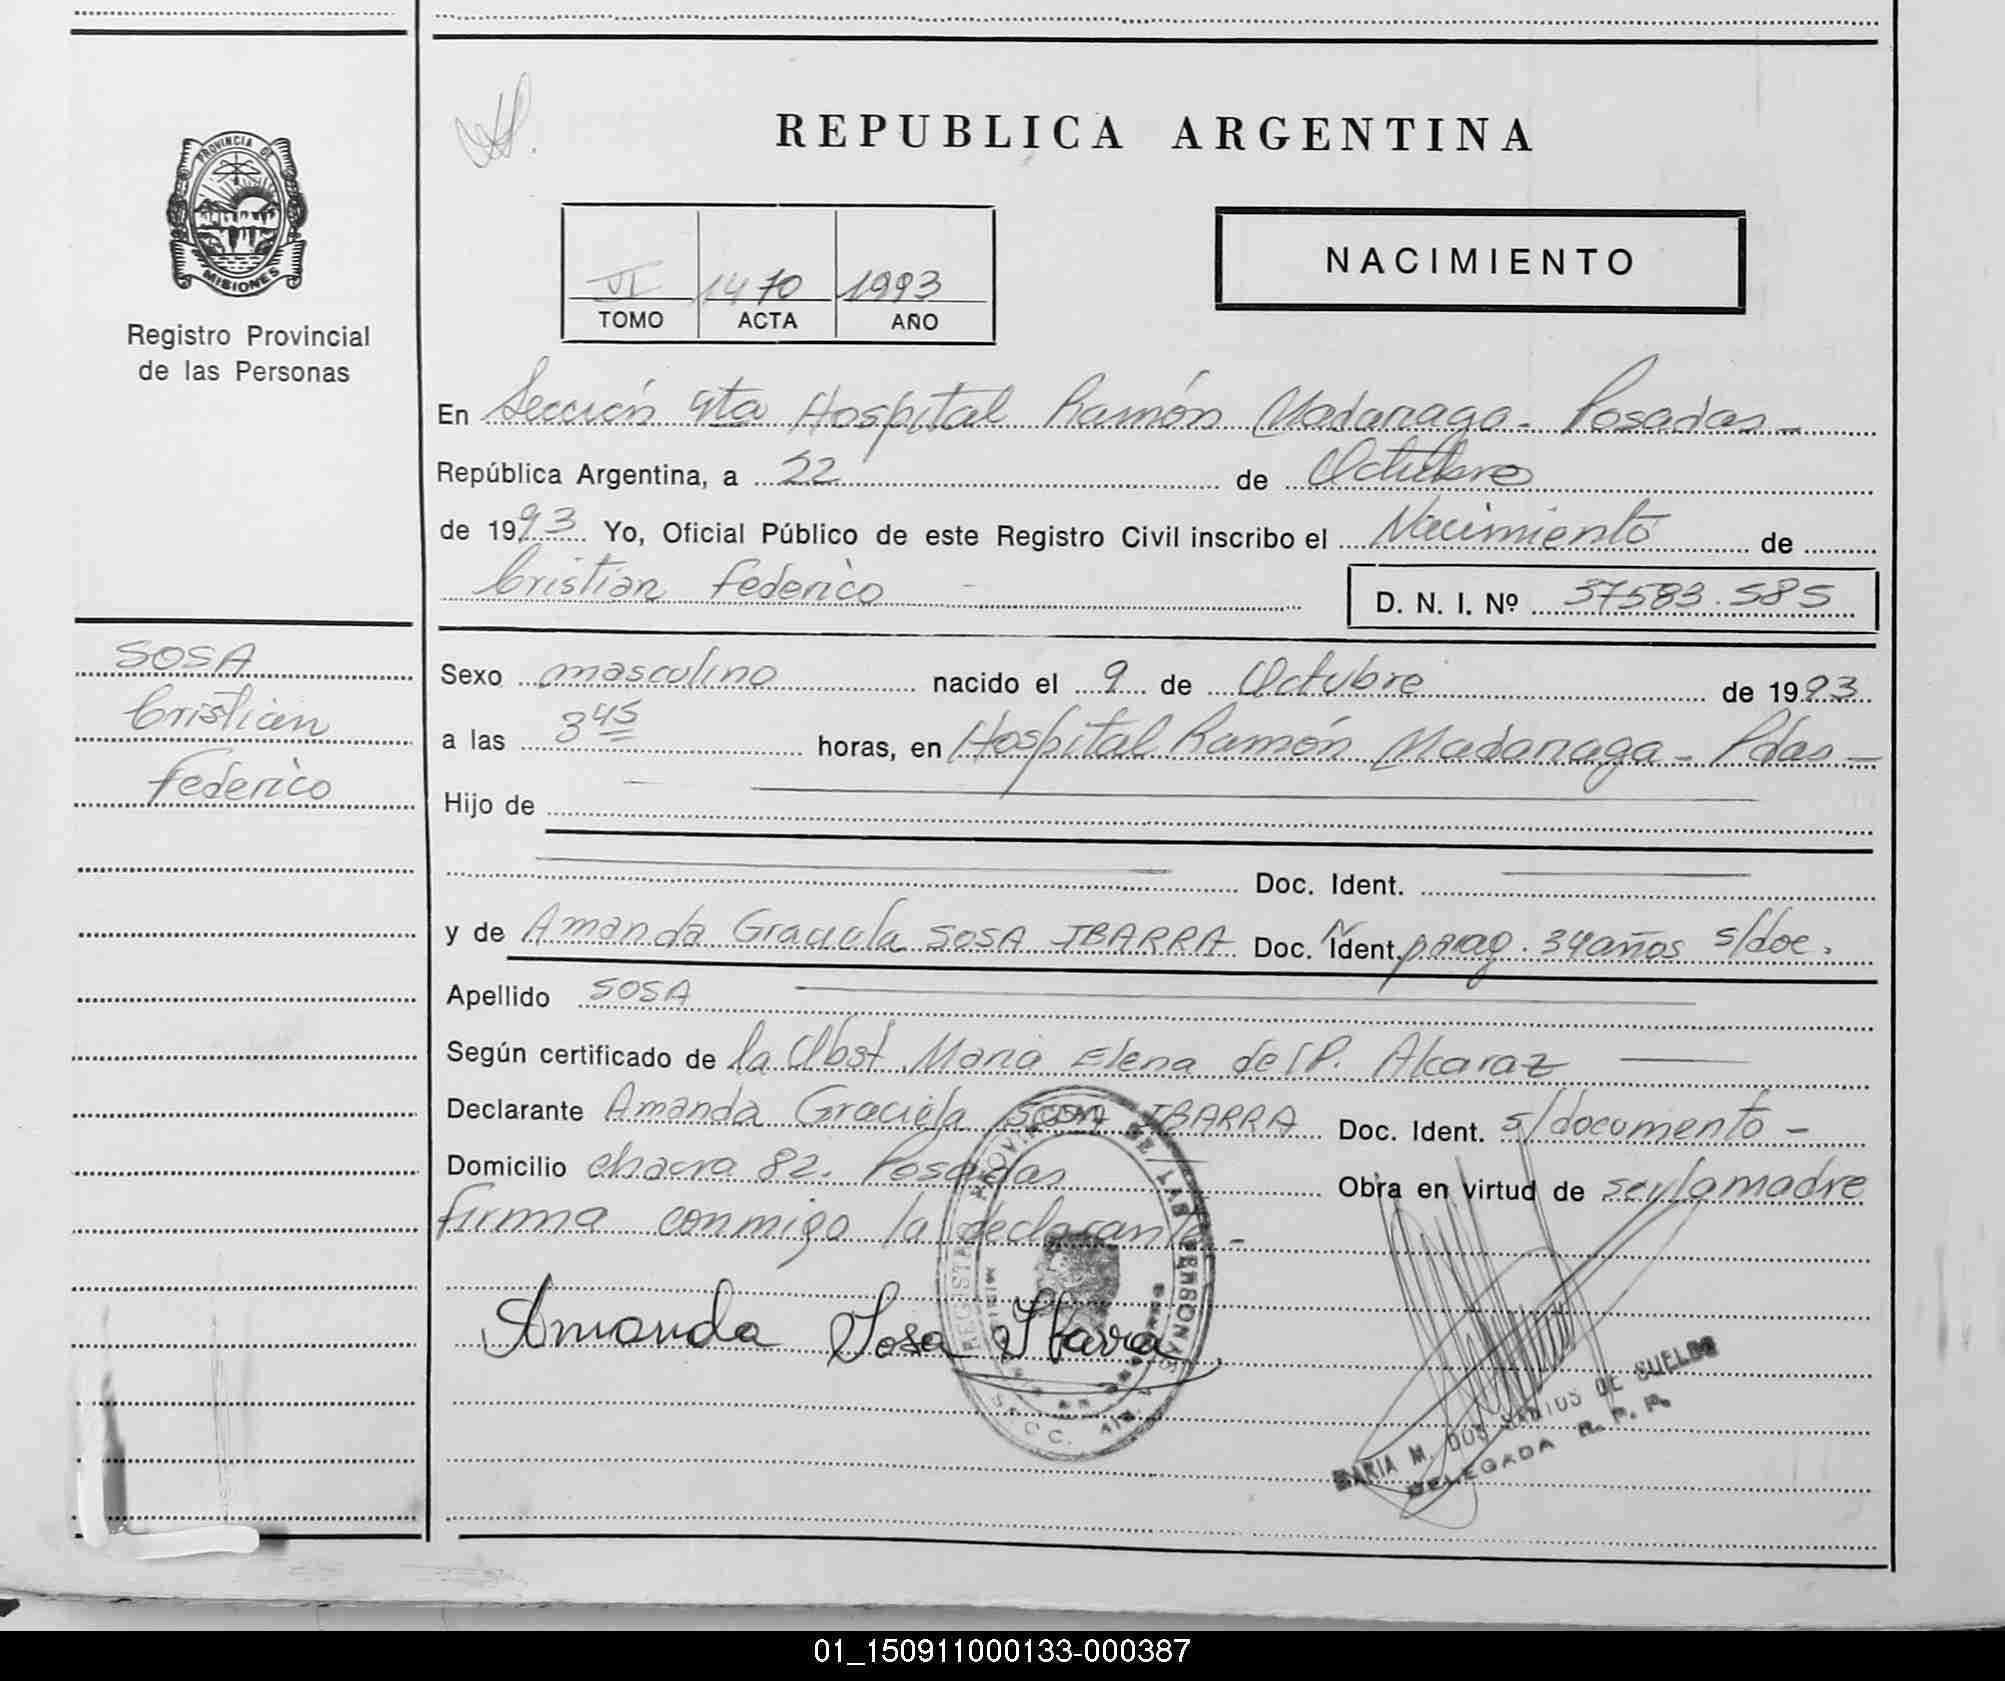 REPUBLICA ARGENTINA
PROVINCIA DE
MISIONES
Registro Provincial
de las Personas
VI 1470 1993
TOMO ACTA AÑO
NACIMIENTO
En Sección 4ta Hospital Ramón Madariaga - Posadas -
República Argentina, a 22 de Octubre
de 1993 Yo, Oficial Público de este Registro Civil inscribo el Nacimiento de
Cristian Federico D. N. I. Nº 37583.585
SOSA
Cristian
Federico
Sexo masculino nacido el 9 de Octubre de 1993
a las 3 45 horas, en Hospital Ramón Madariaga - Pdas -
Hijo de
Doc. Ident.
y de Amanda Graciela SOSA IBARRA Doc. Ident. parag. 34 años s/doc.
Apellido SOSA
Según certificado de la Obst. Maria Elena del P. Alcaraz
Declarante Amanda Graciela SOSA IBARRA Doc. Ident. s/documento -
Domicilio chacra 82. Posadas Obra en virtud de ser la madre
firma conmigo la declarante -
Amanda Sosa Ibarra
REGISTRO PROVINCIAL DE LAS PERSONAS
MARIA M. DOS SANTOS DE SUELDO
DELEGADA R. P. P.
01_150911000133-000387